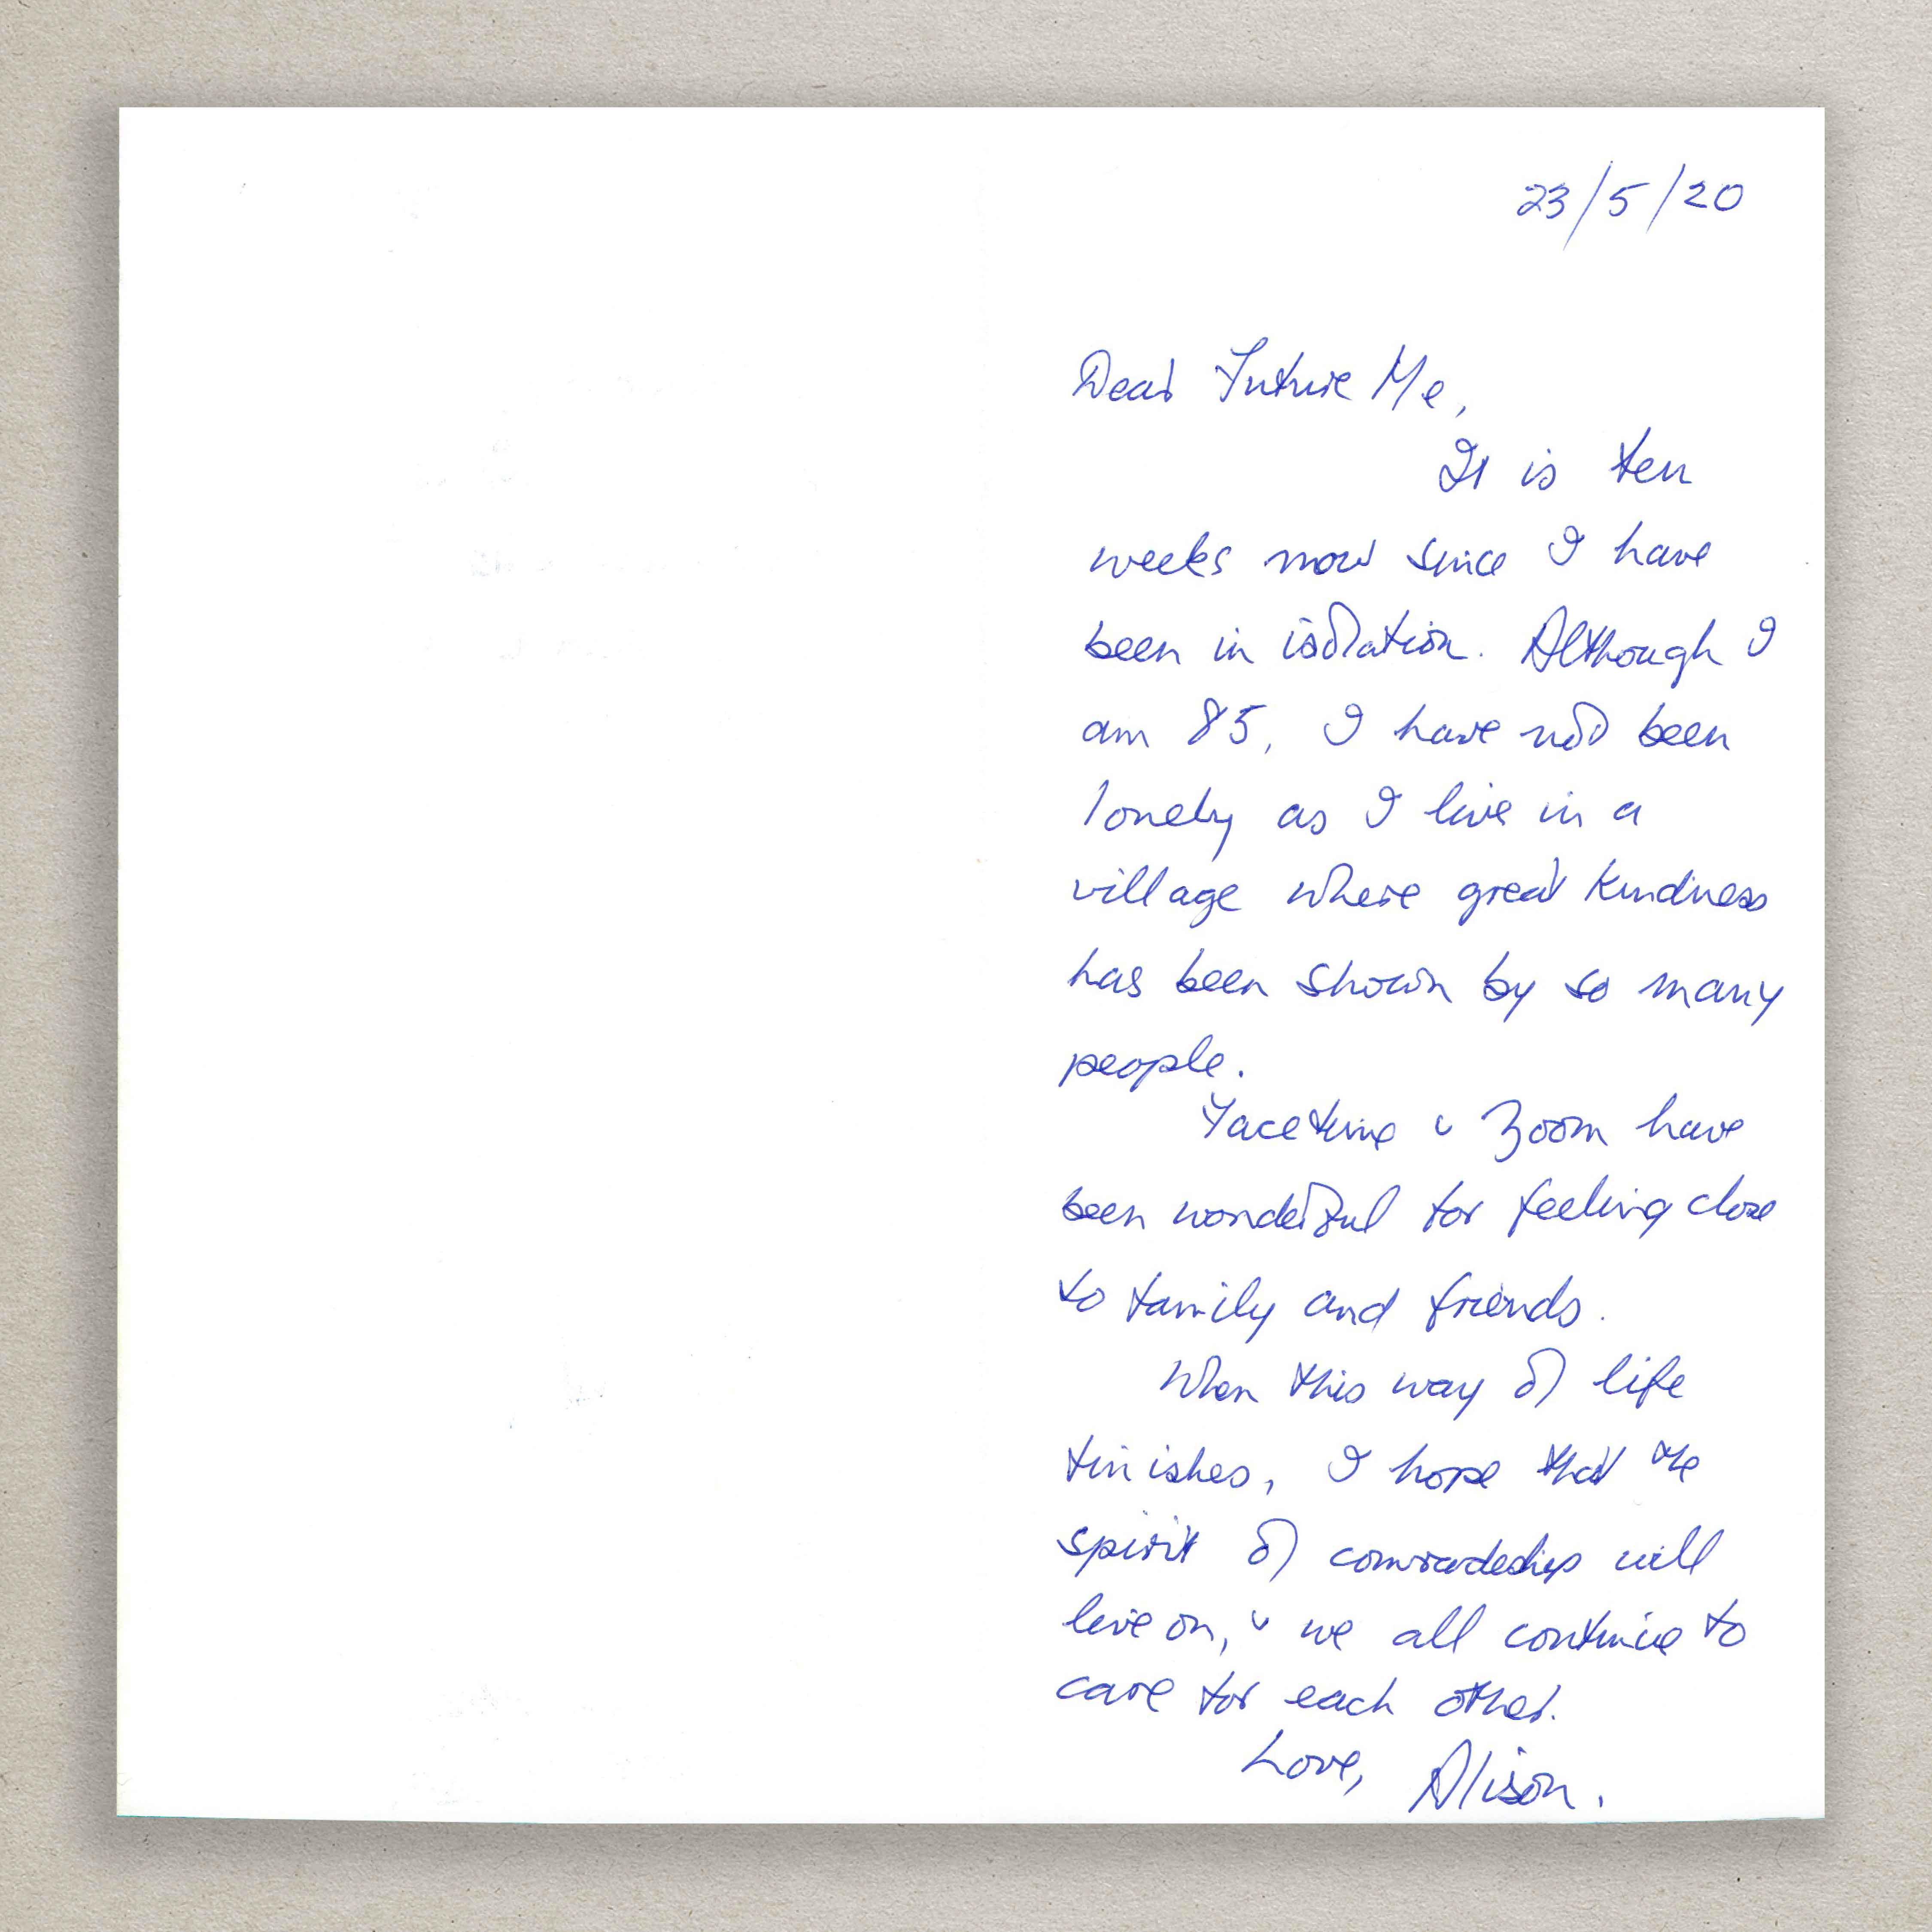 23/5/20
Dear Future Me,
It is ten
weeks now since I have
been in isolation. Although I
am 85, I have not been
lonely as I live in a
village where great kindness
has been shown by so many
people.
Facetime & Zoom have
been wonderful for feeling close
to family and friends.
When this way of life
finishes, I hope that the
spirit of comradeship will
live on, & we all continue to
care for each other.
Love, Alison.